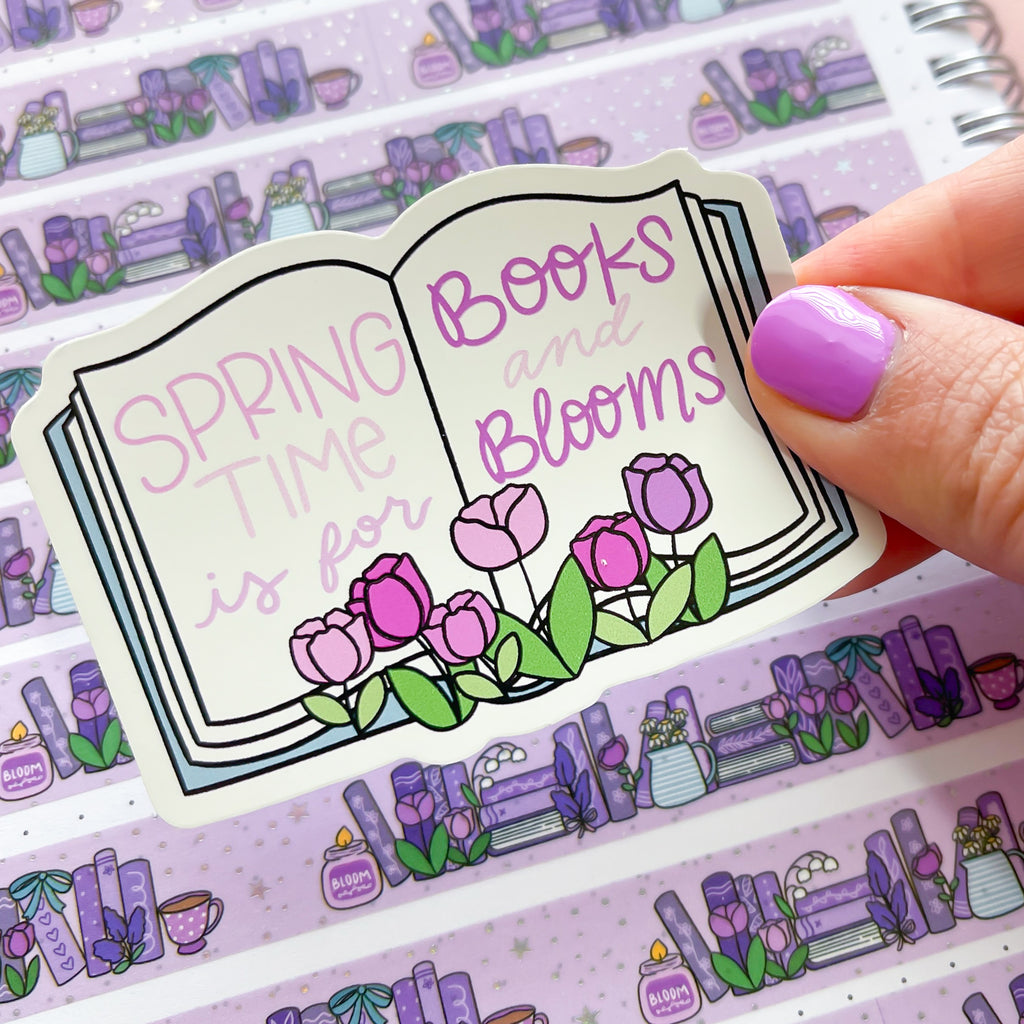 SPRING
TIME
is for
Books
and
Blooms
BLOOM
BLOOM
BLOOM